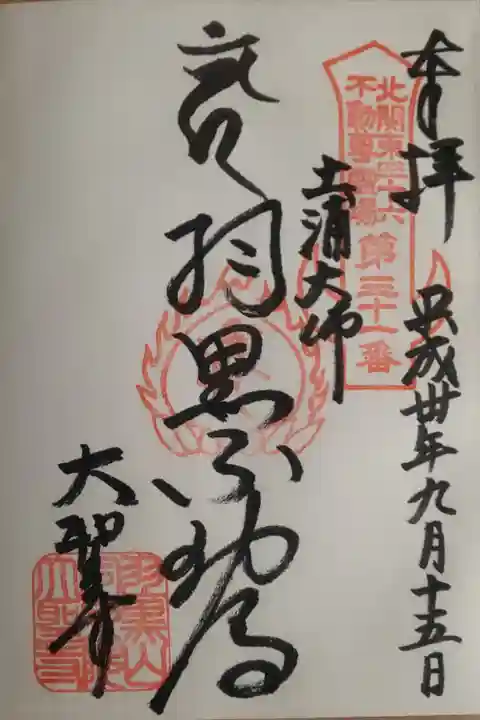 奉拝
平成卅年九月十五日
北関東三十六
不動尊霊場
第三十一番
土浦大師
羽黒不動尊
大聖寺
羽黒山
大聖寺